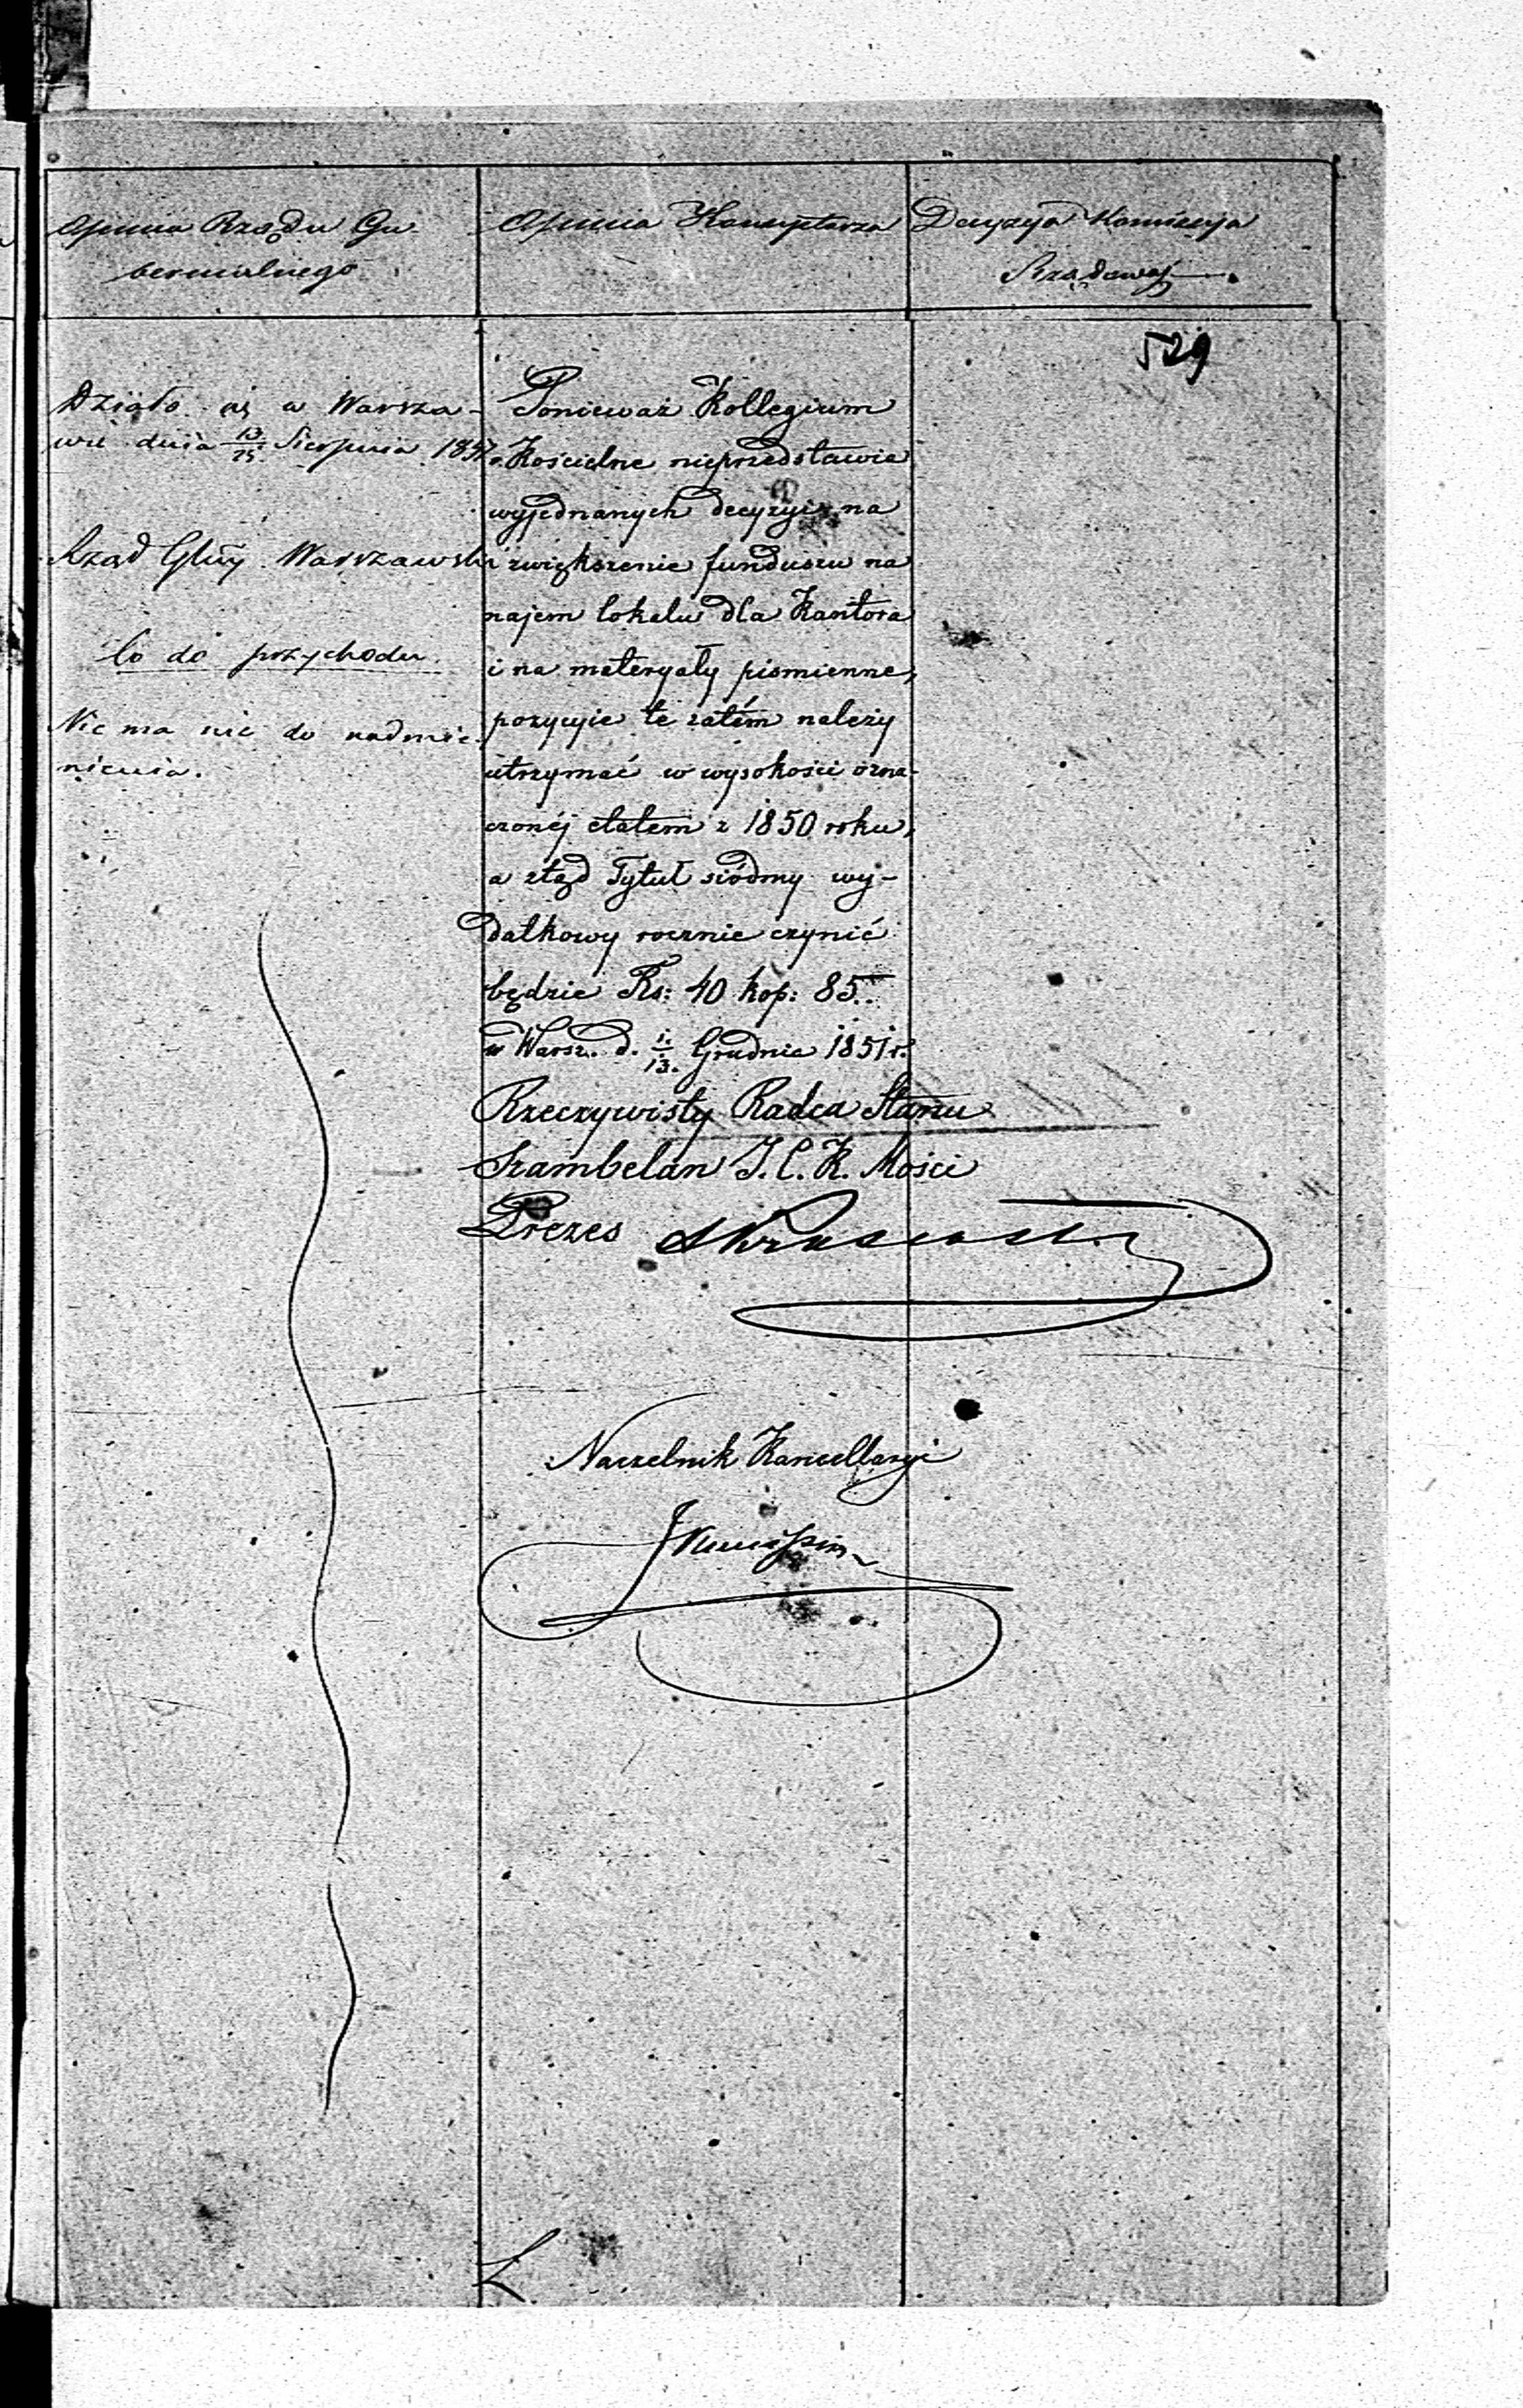 Opinia Rządu Gu
bernialnego
Opinia Konsystorza
Decyzya Kommissyi
Rządowéj
529
Działo się w Warsza-
wie dnia 13/25 Sierpnia 185
Rząd Gbny Warszawski
Co do przychodu.
Nie ma nic do nadmie-
nienia.
Ponieważ Kollegium
Kościelne nieprzedstawia
wyjednanych decyzyi na
zwiększenie funduszu na
najem lokalu dla Kantora
i na materyały piśmienne,
pozycyje te zatém należy
utrzymać w wysokości ozna-
czonéj etatem z 1850 roku,
a ztąd Tytuł siódmy wy-
datkowy rocznie czynić
będzie Rs: 40 kop: 85.
w Warsz. d. 1/13. Grudnia 1851 r.
Rzeczywisty Radca Stanu
Szambelan J. C. K. Mości
Prezes
Naczelnik Kancellaryi